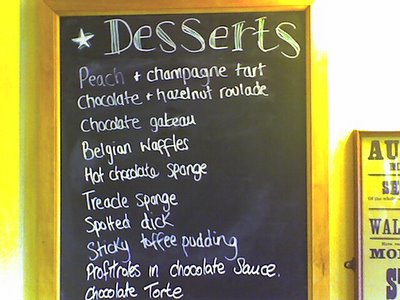 ★ Desserts
Peach + champagne tart
Chocolate + hazelnut roulade
Chocolate gateau
Belgian waffles
Hot chocolate sponge
Treacle sponge
Spotted dick
Sticky toffee pudding
Profitroles in chocolate Sauce.
Chocolate Torte
AU
WAL
MO